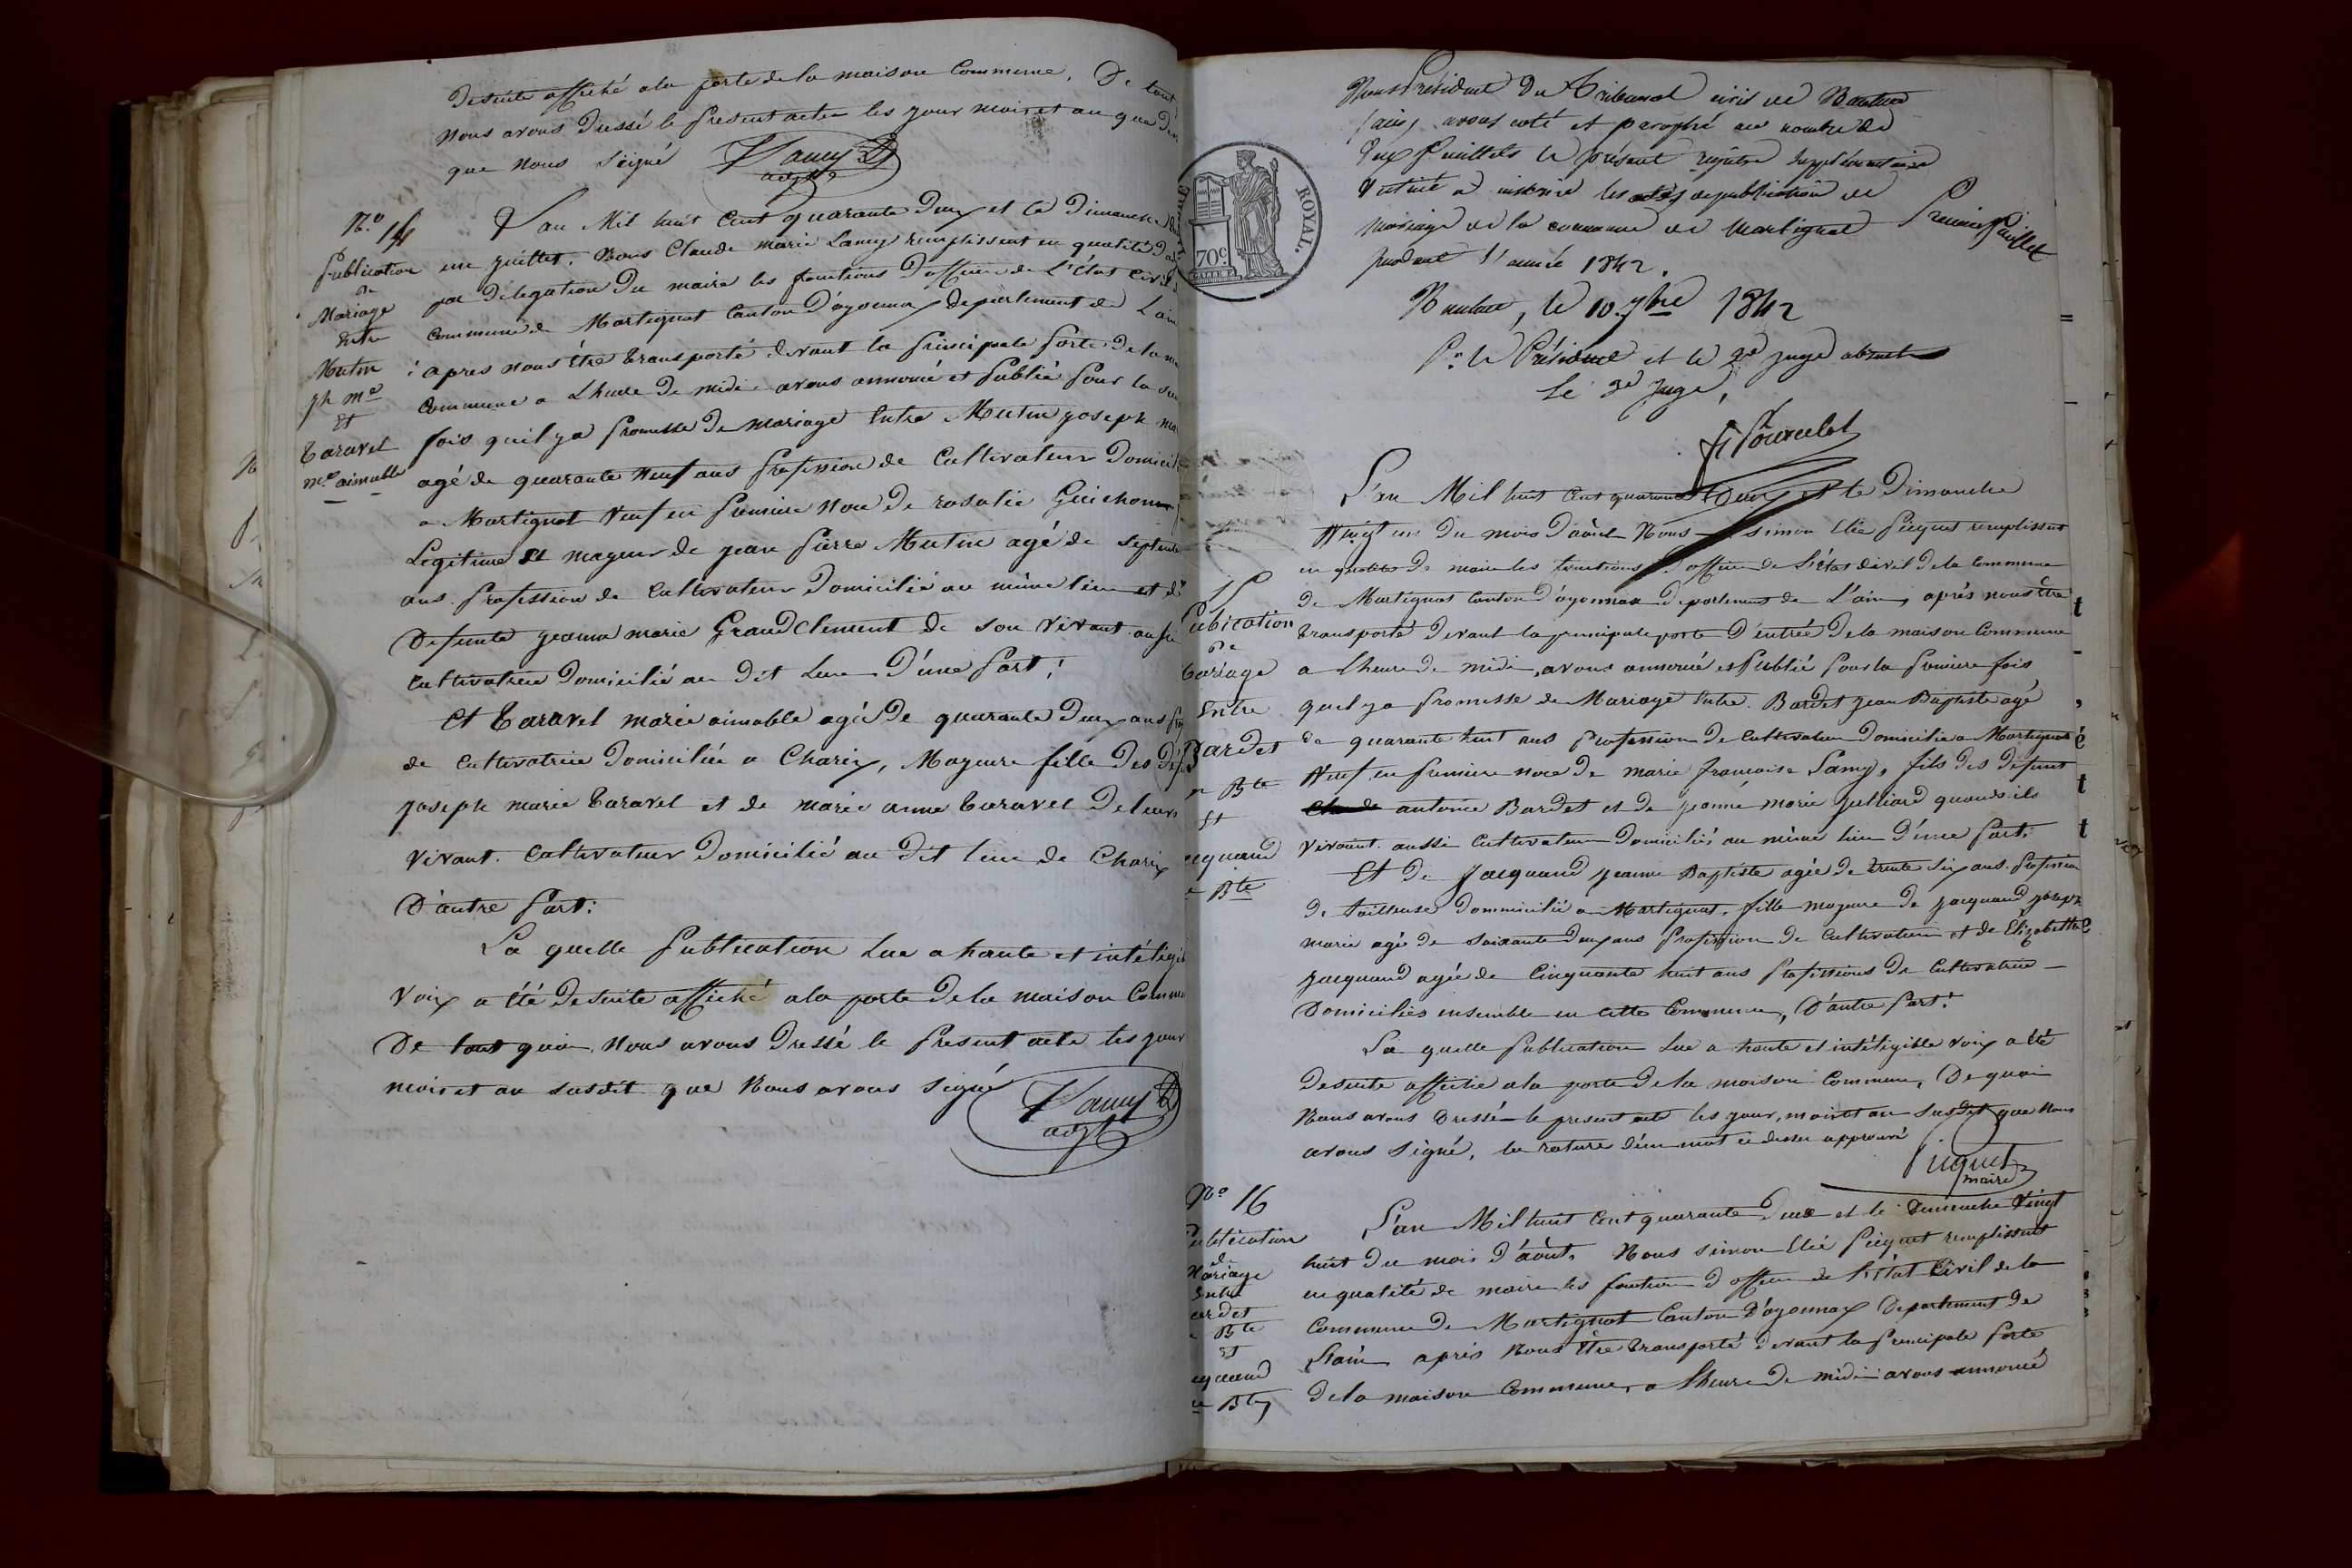 desuite affiché ala porte de la maison Commune. De tout
nous avons dressé le present acte les jour mois et an que
que nous Signé Lamy
adjt
N.o 14
Publication
de
Mariage
Entre
Mutin
jh m.e
Et
Taravel
m.e aimable
L'an Mil huit Cent quarante deux et le Dimanche
un juillet. Nous Claude marie Lamy remplissent en qualité
par délegation du maire les fonctions d'officier de L'état Civil
Commune de Martignat Canton d'oyonnax département de L'ain
apres nous être transporté devant la principale porte de la
Commune a Lheure de midi avons annoncé et publié pour la
fois quil ya promesse de mariage Entre Mutin joseph
agé de quarante neuf ans profession de Cultivateur domicil
a Martignat veuf en premiere noce de rosalie Guichon
Legitime et mageur de jean pierre Mutin agé de
ans profession de Cultivateur domicilié au même lieu et de
defunte jeanne marie Grandclement de son vivant
Cultivatrice domicilié au dit Lieu d'une part;
Et Taravel marie aimable agée de quarante deux ans
de Cultivatrice domiciliée a Charix, Mageure fille des
joseph marie Taravel et de marie anne Taravel de leur
vivant. Cultivateur domicilié au dit lieu de Charix
D'autre part:
La quelle publication Lue a haute et intéligi
voix a été desuite affiché ala porte de la maison Commu
De tout quoi, nous avons dressé le present acte les jour
mois et an susdit que Nous avons signé Lamy
adjt
TIMBRE ROYAL.
70c.
Nous Président du Tribunal civil de Nantua
(ain), avons coté et paraphé au nombre de
deux feuillets le présent registre supplémentaire
destiné a inscrire les actes de publication de
mariage de la commune de Martignat
pendant l'année 1842.
Premier feuillet
Nantua, le 10 7bre 1842
Pr le Président et le 2d juge absents
Le 3e juge,
Publication
de
Mariage
Entre
Bardet
n Bte
Et
acquand
e Bte
L'an Mil huit Cent quarante Deux et le Dimanche
Vingt un du mois d'août Nous simon Elie piquet remplissent
en qualité de maire les fonctions d'officier de L'état Civil de la Commune
de Martignat Canton d'oyonnax departement de L'ain, après nous être
transporté devant la principale porte d'entrée de la maison Commune
a Lheure de midi, avons annoncé et publié pour la premiere fois
quil ya promesse de Mariage Entre Bardet jean Baptiste agé
de quarante huit ans Profession de Cultivateur domicilié a Martignat
Veuf en premiere noce de marie francoise Lamy, fils des défunt
antoine Bardet et de jeanne marie julliard quand ils
vivaint. aussi Cultivateur domiciliés au même lieu d'une part.
Et de Jacquand jeanne Baptiste agée de trente six ans profession
de tailleuse domicilié a Martignat, fille mageure de jacquand joseph
marie agé de soixante deux ans profession de Cultivateur et de Elizabetthe
jacquand agée de Cinquante huit ans professions de Cultivatrice
Domiciliés ensemble en cette Commune, D'autre part:
La quelle publication Lue a haute et intéligible voix a été
desuite affichée ala porte de la maison Commune, De quoi
Nous avons dressé le present acte les jour, mois et an susdit que nous
avons signé, la rature d'un mot ci dessu approuvé
piquet
maire
N.o 16
Publication
de
Mariage
Entre
ardet
n Bte
Et
acquand
ne Bte
L'an Mil huit Cent quarante deux et le Dimanche Vingt
huit du mois d'août. Nous simon Elié piquet remplissent
en qualité de maire les fonction d'officier de L'état Civil de la
Commune de Martignat Canton d'oyonnax Departement de
L'ain après Nous être transporté devant la principale porte
de la maison Commune, a Lheure de midi avons annoncé